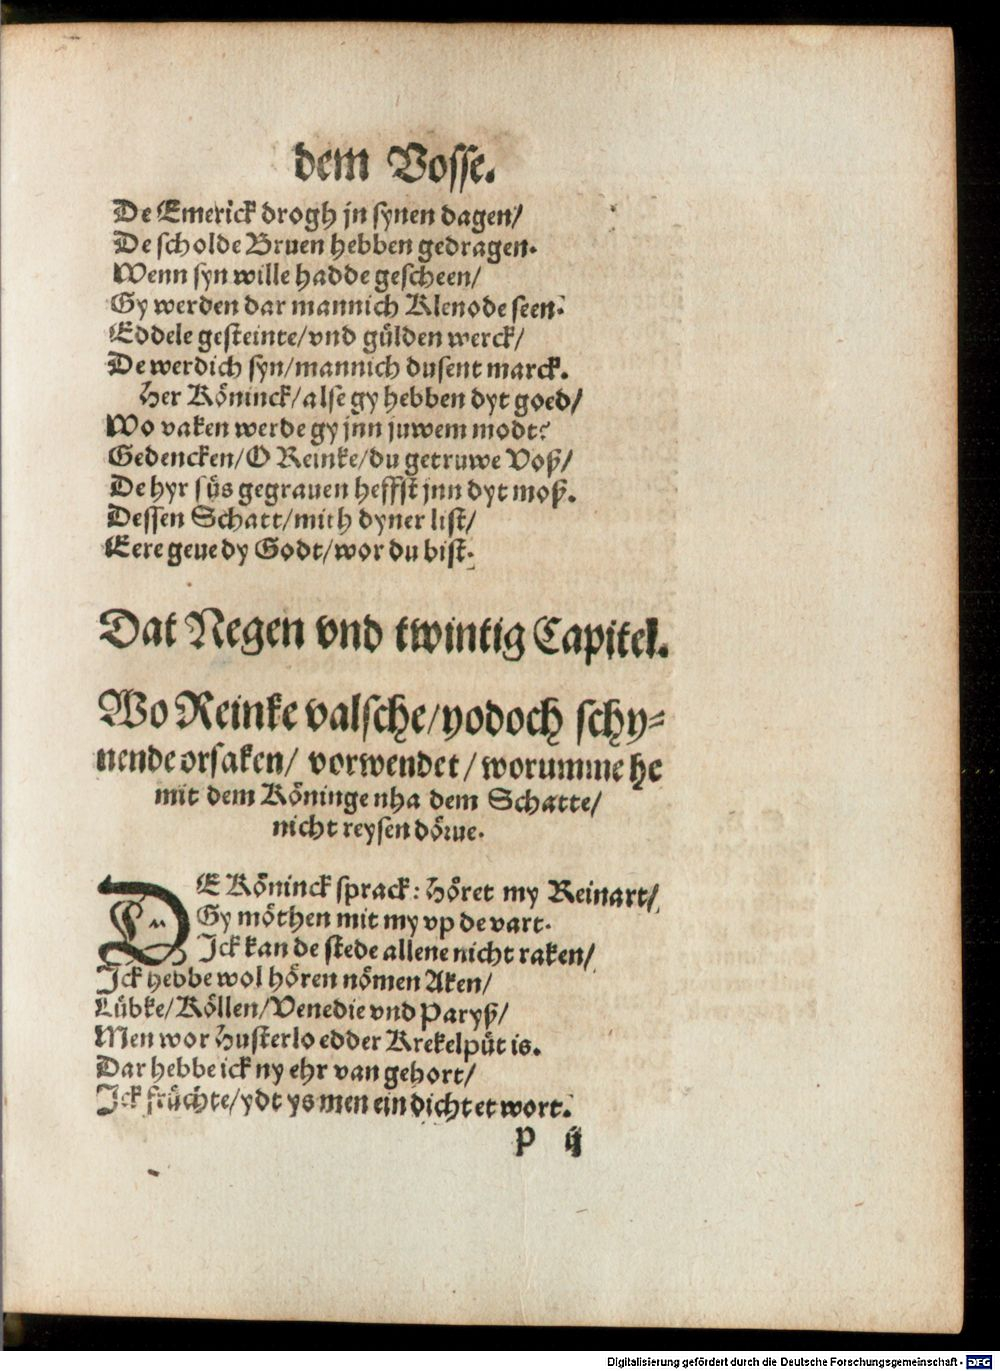 dem Vosse.
De Emerick drogh jn synen dagen/
De scholde Bruen hebben gedragen.
Wenn syn wille hadde gescheen/
Gy werden dar mannich Klenode seen.
Eddele gesteinte/vnd gülden werck/
De werdich syn/mannich dusent marck.
Her Köninck/alse gy hebben dyt goed/
Wo vaken werde gy jnn juwem modt?
Gedencken/O Reinke/du getruwe Voß/
De hyr süs gegrauen heffst jnn dyt moß.
Dessen Schatt/mith dyner list/
Eere geue dy Godt/wor du bist.
Dat Negen vnd twintig Capitel.
Wo Reinke valsche/yodoch schy-
nende orsaken/ vorwendet/worumme he
mit dem Köninge nha dem Schatte/
nicht reysen dörue.
DE Köninck sprack: Höret my Reinart/
Gy möthen mit my vp de vart.
Ick kan de stede allene nicht raken/
Ick hebbe wol hören nömen Aken/
Lübke/Köllen/Venedie vnd Paryß/
Men wor Husterlo edder Krekelpüt is.
Dar hebbe ick ny ehr van gehort/
Ick früchte/ydt ys men ein dichtet wort.
P ij
Digitalisierung gefördert durch die Deutsche Forschungsgemeinschaft - DFG